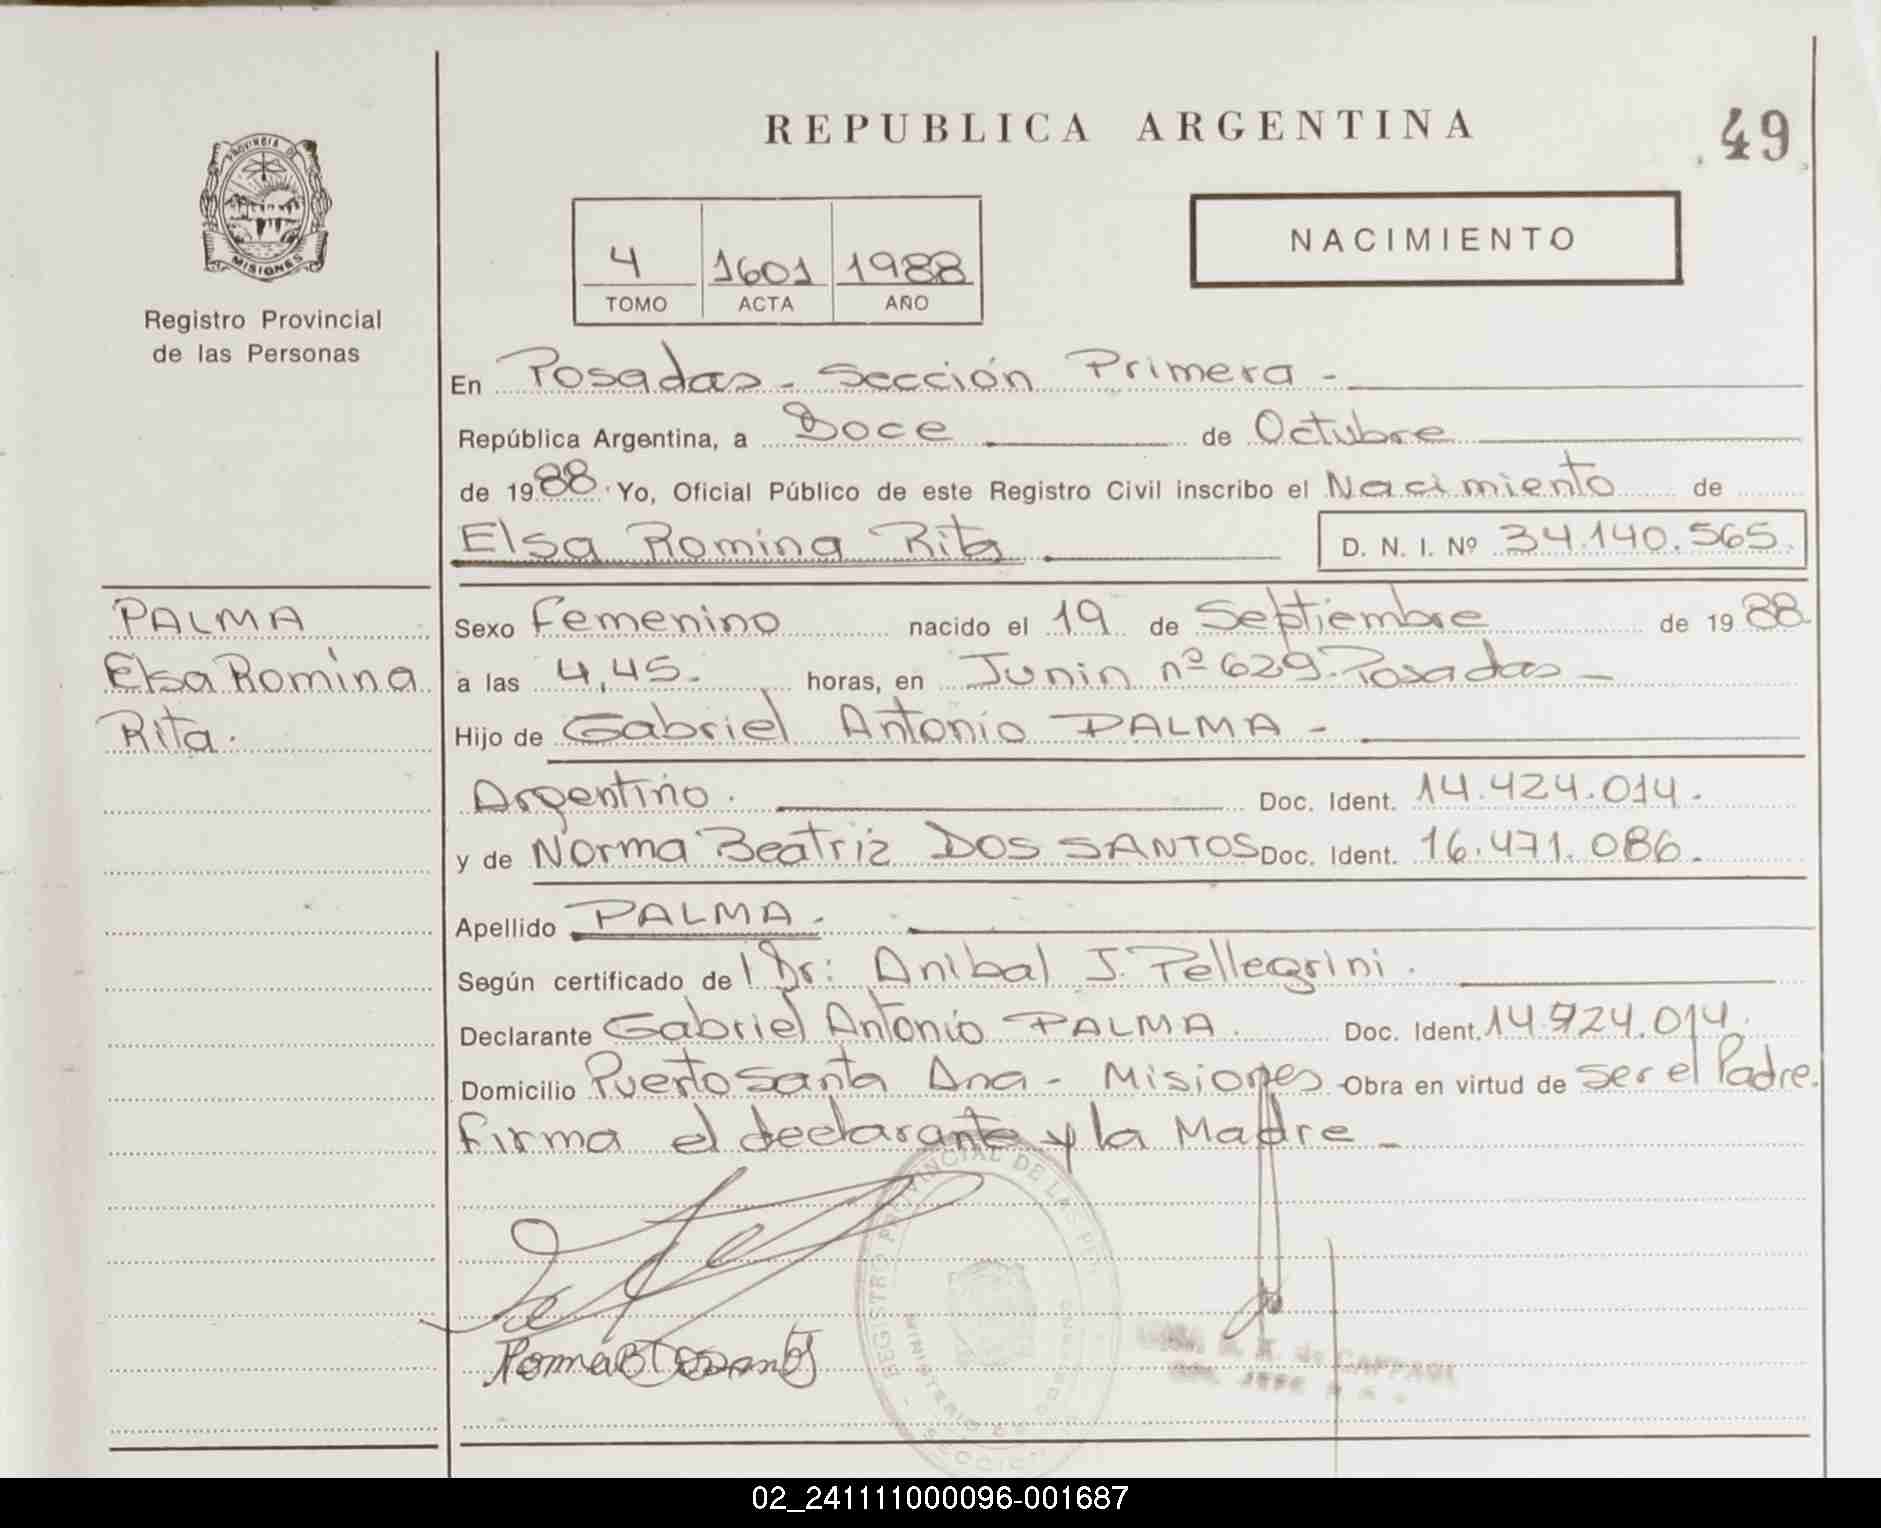 REPUBLICA ARGENTINA
49
PROVINCIA DE
MISIONES
Registro Provincial
de las Personas
4 1601 1988
TOMO ACTA AÑO
NACIMIENTO
En Posadas - Sección Primera -
República Argentina, a Doce de Octubre
de 1988 Yo, Oficial Público de este Registro Civil inscribo el Nacimiento de
Elsa Romina Rita D. N. I. Nº 34.140.565.
PALMA
Elsa Romina
Rita.
Sexo Femenino nacido el 19 de Septiembre de 1988
a las 4,45. horas, en Junin nº 629. Posadas -
Hijo de Gabriel Antonio PALMA -
Argentino. Doc. Ident. 14.424.014.
y de Norma Beatriz DOS SANTOS Doc. Ident. 16.471.086.
Apellido PALMA.
Según certificado de l Dr: Anibal J. Pellegrini.
Declarante Gabriel Antonio PALMA. Doc. Ident. 14.424.014.
Domicilio Puerto Santa Ana - Misiones - Obra en virtud de ser el Padre.
Firma el declarante y la Madre -
REGISTRO PROVINCIAL DE LAS PER
MINISTERIO DE GOBIERNO
SECCIO
02_241111000096-001687